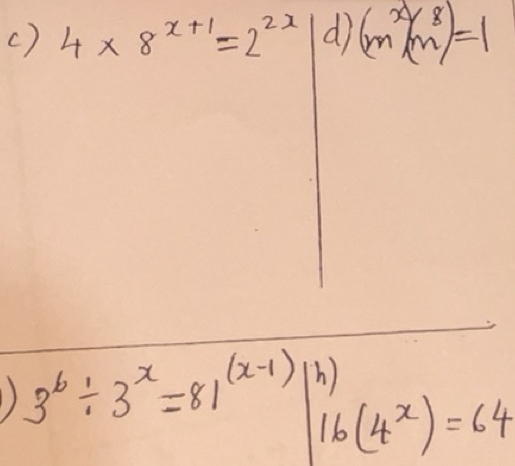 c) 4 × 8^(x+1) = 2^(2x)
d) (m^x)(m^8) = 1
) 3^6 ÷ 3^x = 81^(x-1)
h)
16(4^x) = 64